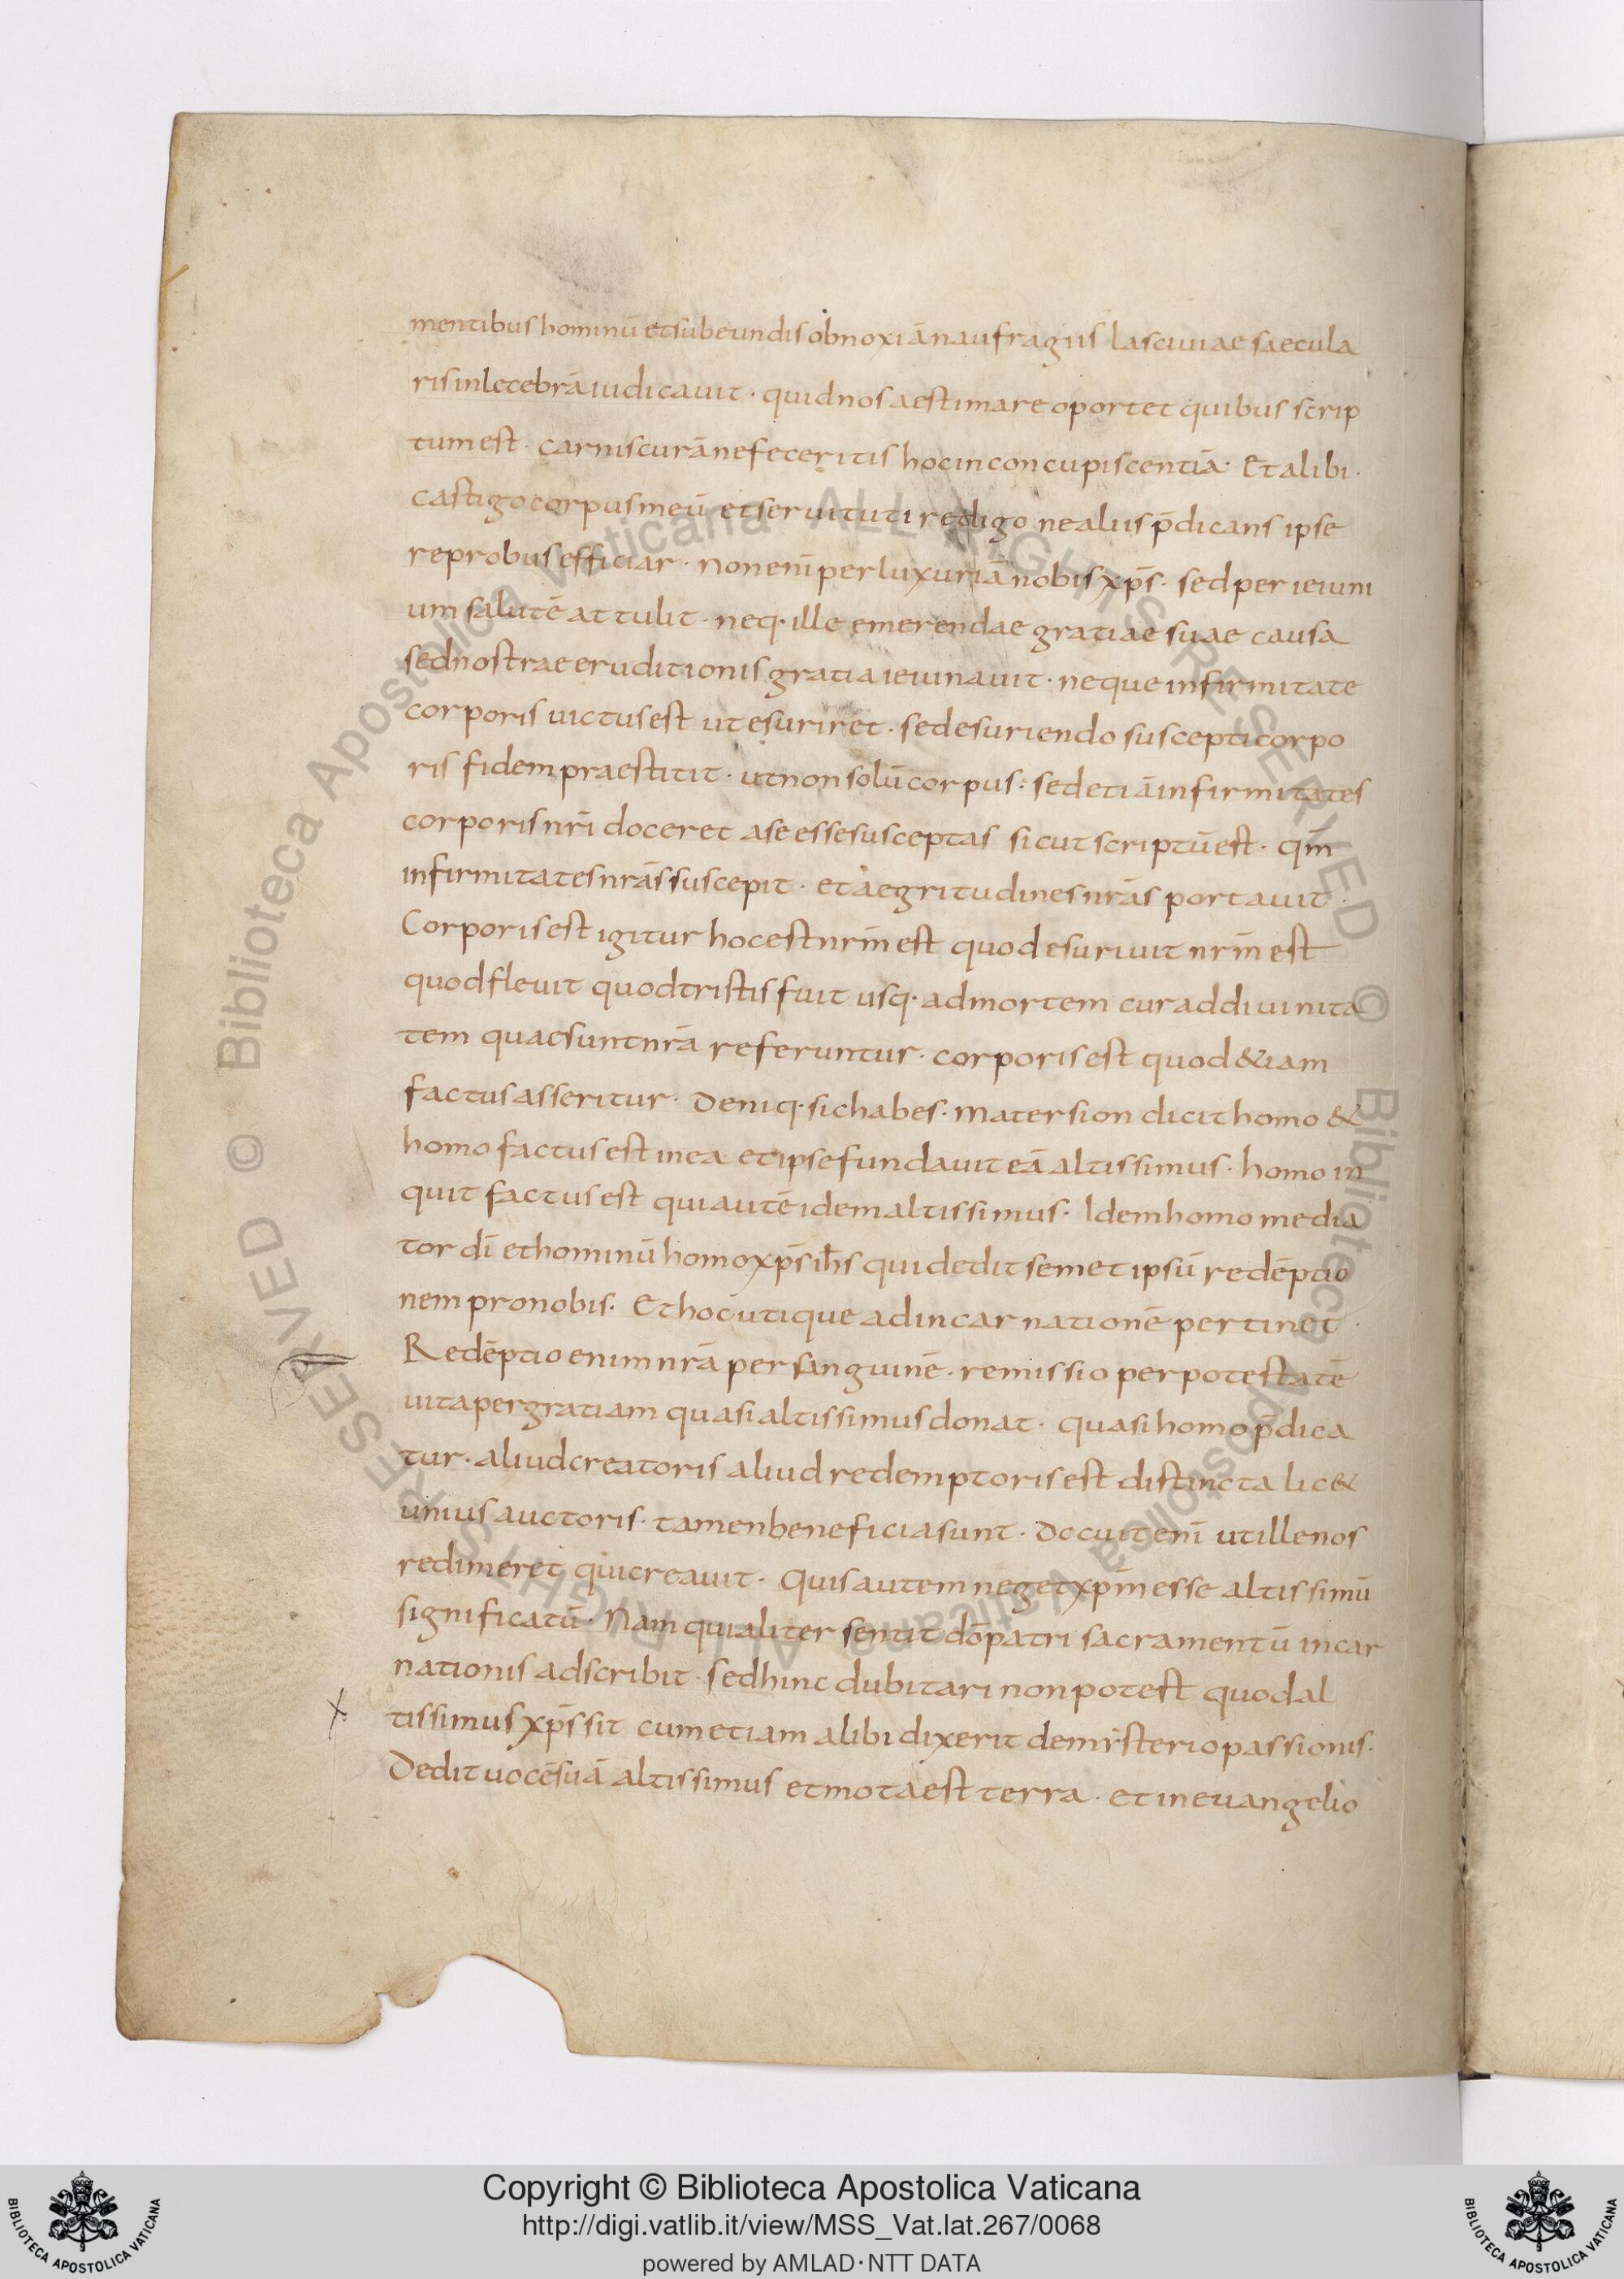 mentibus hominū et subeundis obnoxiā naufragiis lasciuiae saecula
ris inlecebrā iudicauit · quid nos aestimare oportet quibus scrip
tum est · carnis curā ne feceritis hoc in concupiscentiā · Et alibi ·
castigo corpus meū et seruituti redigo ne aliis p̄dicans ipse
reprobus efficiar · Non enī per luxuriā nobis xp̄s · sed per ieiuni
um salutē attulit · neq· ille emerendae gratiae suae causa
sed nostrae eruditionis gratia ieiunauit · neque infirmitate
corporis uictus est ut esuriret · sed esuriendo suscepti corpo
ris fidem praestitit · ut non solū corpus : sed etiā infirmitates
corporis nr̄i doceret a se esse susceptas sicut scriptū est · qm̄
infirmitates nr̄as suscepit · et aegritudines nr̄as portauit ·
Corporis est igitur hoc est nrm̄ est quod esuriuit nrm̄ est
quod fleuit quod tristis fuit usq· ad mortem cur ad diuinita
tem quae sunt nr̄a referuntur · corporis est quod &iam
factus asseritur · Deniq· sic habes · Mater sion dicit homo &
homo factus est in ea et ipse fundauit eā altissimus · homo in
quit factus est qui autē idem altissimus · Idem homo media
tor dī et hominū homo xp̄s ih̄s qui dedit semet ipsū redēptio
nem pro nobis · Et hoc utique ad incarnationē pertinet ·
Redēptio enim nr̄a per sanguinē · remissio per potestatē
uita per gratiam quasi altissimus donat · quasi homo p̄dica
tur · aliud creatoris aliud redemptoris est distincta lic&
unius auctoris · tamen beneficia sunt · Docuit enī ut ille nos
redimeret qui creauit · Quis autem neget xpm̄ esse altissimū
significatū · Nam qui aliter sentit dō patri sacramentū incar
nationis adscribit · sed hinc dubitari non potest quod al
tissimus xp̄s sit cum etiam alibi dixerit de misterio passionis ·
Dedit uocē suā altissimus et mota est terra · et in euangelio
Copyright © Biblioteca Apostolica Vaticana
http://digi.vatlib.it/view/MSS_Vat.lat.267/0068
powered by AMLAD · NTT DATA
BIBLIOTECA APOSTOLICA VATICANA
BIBLIOTECA APOSTOLICA VATICANA